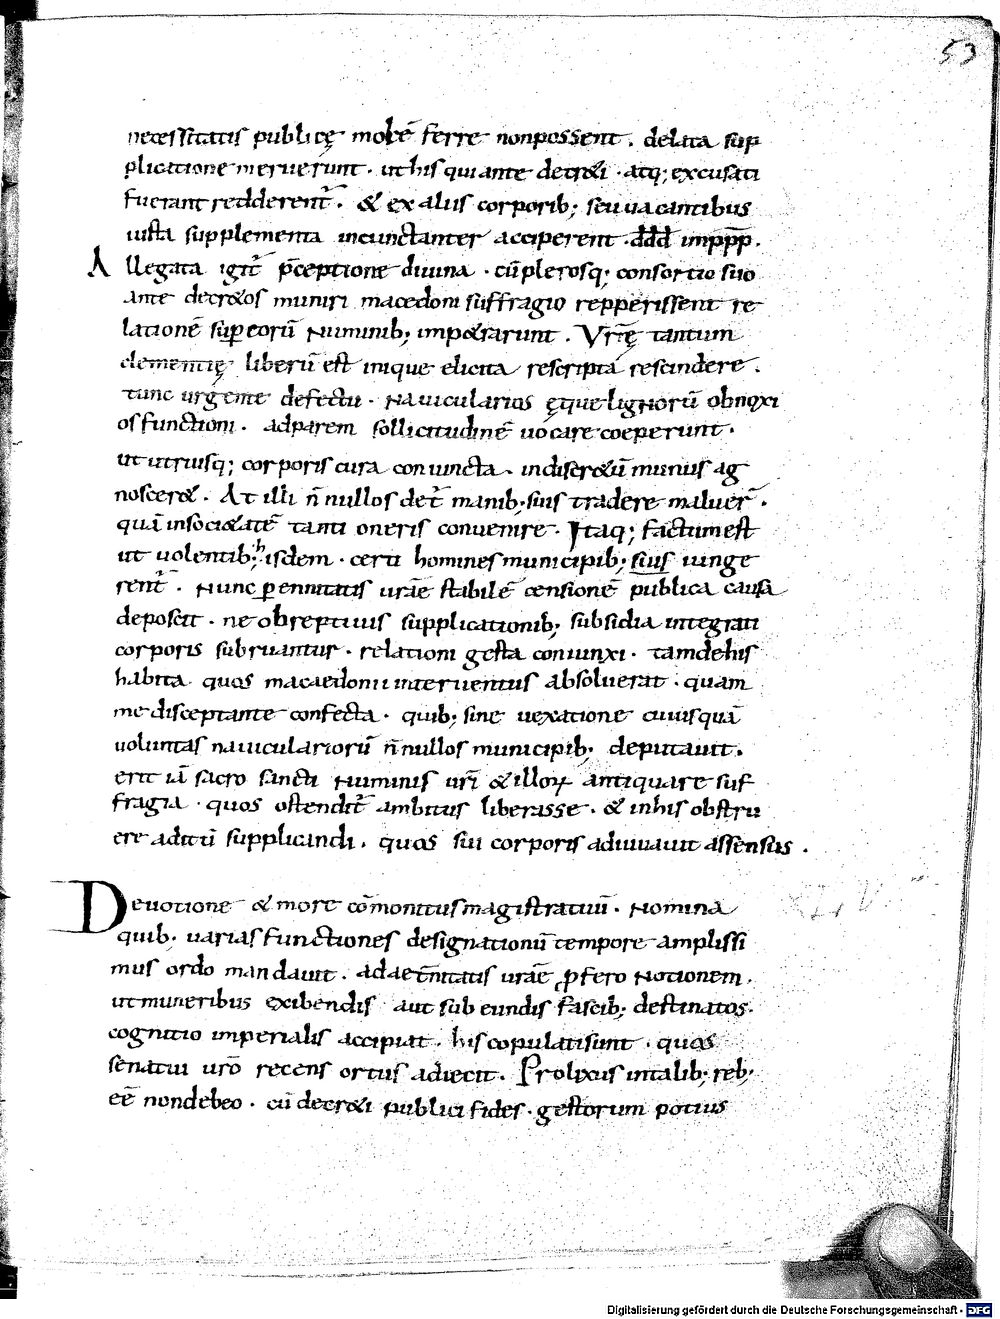 53
necessitatis publicę molē ferre nonpossent . delata sup
plicatione meruerunt . uthis quiante decr&i . atq; excusati
fuerant redderent̄ . & exaliis corporib; seu uacantibus
iusta supplementa incunctanter acciperent . ddd imppp .
Allegata igit̄ p̄ceptione diuina . cū plerosq; consortio suo
ante decr&os muniri macedoni suffragio repperissent re
lationē sup eorū Numinib; imp&rarunt . Vr̄ę tantum
clementię liberū est inique elicita rescripta rescindere .
tunc urgente defectu . Nauicularios ęque lignorū obnoxi
os functioni . adparem sollicitudinē uocare coeperunt .
ut utriusq; corporis cura coniuncta . indiscr&ū munus ag
nosceret . At illi n̄nullos det̄ manib; suis tradere maluer̄ .
quā insoci&atē tanti oneris conuenire . Itaq; factum est
ut uolentib; hisdem . certi homines municipib; suis iunge
rent̄ . Nunc ꝑennitatis urāe stabilē censionē publica causa
deposcit . ne obreptiuis supplicationib; subsidia integrati
corporis subruantur . relationi gesta coniunxi . tamdehis
habita quos macaedonii interuentus absoluerat . quam
me disceptante confecta . quib; sine uexatione cuiusquā
uoluntas nauiculariorū n̄nullos municipib; deputauit .
erit iā sacro sancti Numinis ur̄i & illoꝝ antiquare suf
fragia . quos ostendit̄ ambitus liberasse . & inhis obstru
ere aditū supplicandi . quos sui corporis adiuuauit assensus .
Deuotione & more cōmonitus magistratuū . Nomina
quib; uarias functiones designationū tempore amplissi
mus ordo mandauit . adaet̄nitatis urāe ꝓfero Notionem .
ut muneribus exibendis aut subeundis fascib; destinatos .
cognitio imperialis accipiat . his copulatisunt . quos
senatui urō recens ortus adiecit . Prolixus intalib; reb;
eē nondebeo . cū decr&i publici fides . gestorum potius
Digitalisierung gefördert durch die Deutsche Forschungsgemeinschaft - DFG